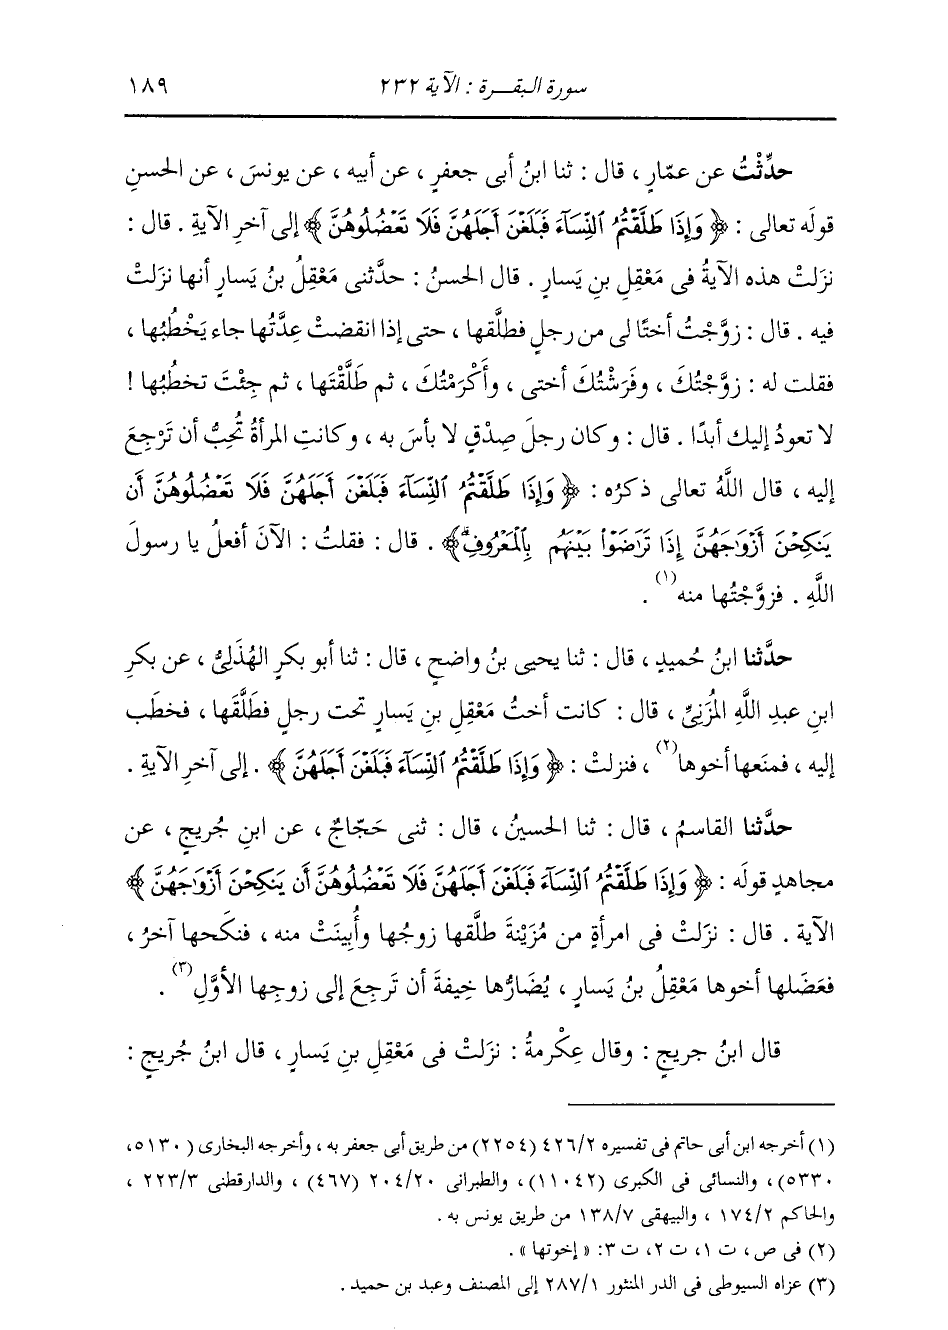 سورة البقرة : الآية ٢٣٢ ١٨٩
حدِّثْتُ عن عمّارٍ ، قال : ثنا ابنُ أبى جعفرٍ ، عن أبيه ، عن يونسَ ، عن الحسنِ
قولَه تعالى : ﴿ وَإِذَا طَلَّقْتُمُ ٱلنِّسَآءَ فَبَلَغْنَ أَجَلَهُنَّ فَلَا تَعْضُلُوهُنَّ ﴾ إلى آخرِ الآيةِ . قال :
نزَلتْ هذه الآيةُ فى مَعْقِلِ بنِ يَسارٍ . قال الحسنُ : حدَّثنى مَعْقِلُ بنُ يَسارٍ أنها نزَلتْ
فيه . قال : زوَّجْتُ أختًا لى من رجلٍ فطلَّقها ، حتى إذا انقضتْ عِدَّتُها جاء يَخْطُبُها ،
فقلت له : زوَّجْتُكَ ، وفَرَشْتُكَ أختى ، وأَكْرَمْتُكَ ، ثم طَلَّقْتَها ، ثم جِئْتَ تخطُبُها !
لا تعودُ إليك أبدًا . قال : وكان رجلَ صِدْقٍ لا بأسَ به ، وكانتِ المرأةُ تُحِبُّ أن تَرْجِعَ
إليه ، قال اللَّهُ تعالى ذكرُه : ﴿ وَإِذَا طَلَّقْتُمُ ٱلنِّسَآءَ فَبَلَغْنَ أَجَلَهُنَّ فَلَا تَعْضُلُوهُنَّ أَن
يَنكِحْنَ أَزْوَٰجَهُنَّ إِذَا تَرَٰضَوْا۟ بَيْنَهُم بِٱلْمَعْرُوفِۗ ﴾ . قال : فقلتُ : الآنَ أفعلُ يا رسولَ
اللَّهِ . فزوَّجْتُها منه(١) .
حدَّثنا ابنُ حُميدٍ ، قال : ثنا يحيى بنُ واضحٍ ، قال : ثنا أبو بكرٍ الهُذَلِىُّ ، عن بكرِ
ابنِ عبدِ اللَّهِ المُزَنِىِّ ، قال : كانت أختُ مَعْقِلِ بنِ يَسارٍ تحت رجلٍ فطَلَّقَها ، فخطَب
إليه ، فمنَعها أخوها(٢) ، فنزلتْ : ﴿ وَإِذَا طَلَّقْتُمُ ٱلنِّسَآءَ فَبَلَغْنَ أَجَلَهُنَّ ﴾ . إلى آخرِ الآيةِ .
حدَّثنا القاسمُ ، قال : ثنا الحسينُ ، قال : ثنى حَجّاجٌ ، عن ابنِ جُريجٍ ، عن
مجاهدٍ قولَه : ﴿ وَإِذَا طَلَّقْتُمُ ٱلنِّسَآءَ فَبَلَغْنَ أَجَلَهُنَّ فَلَا تَعْضُلُوهُنَّ أَن يَنكِحْنَ أَزْوَٰجَهُنَّ ﴾
الآية . قال : نزَلتْ فى امرأةٍ من مُزَيْنةَ طلَّقها زوجُها وأُبِينَتْ منه ، فنكَحها آخرُ ،
فعَضَلها أخوها مَعْقِلُ بنُ يَسارٍ ، يُضَارُّها خِيفةَ أن تَرجِعَ إلى زوجِها الأوَّلِ(٣) .
قال ابنُ جريجٍ : وقال عِكْرمةُ : نزَلتْ فى مَعْقِلِ بنِ يَسارٍ ، قال ابنُ جُريجٍ :
(١) أخرجه ابن أبى حاتم فى تفسيره ٤٢٦/٢ (٢٢٥٤) من طريق أبى جعفر به ، وأخرجه البخارى (٥١٣٠،
٥٣٣٠)، والنسائى فى الكبرى (١١٠٤٢)، والطبرانى ٢٠٤/٢٠ (٤٦٧) ، والدارقطنى ٢٢٣/٣ ،
والحاكم ١٧٤/٢ ، والبيهقى ١٣٨/٧ من طريق يونس به .
(٢) فى ص، ت ١، ت ٢، ت ٣: « إخوتها » .
(٣) عزاه السيوطى فى الدر المنثور ٢٨٧/١ إلى المصنف وعبد بن حميد .